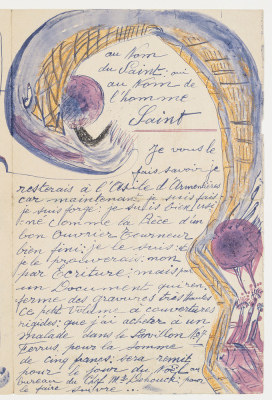 au Nom
du Saint, oui
au Nom de
l'homme
Saint
Je vous le
fais savoir je
resterais à l'Asile d'Armentières
car maintenant je suis fait
je suis forgé je suis bien
comme la Pièce d'un
bon Ouvrier Tourneur
bien fini; je le suis et
je le prouverais, non
par Ecriture; mais par
un Document qui ren
ferme des gravures très hautes
ce petit Volume à couvertures
rigides, que j'ai acheter à un
malade dans le Pavillon
Ferrus, pour la somme
de cinq francs; sera remit
pour le jour du Noël au
bureau du Chef Mr pour
le faire suivre...